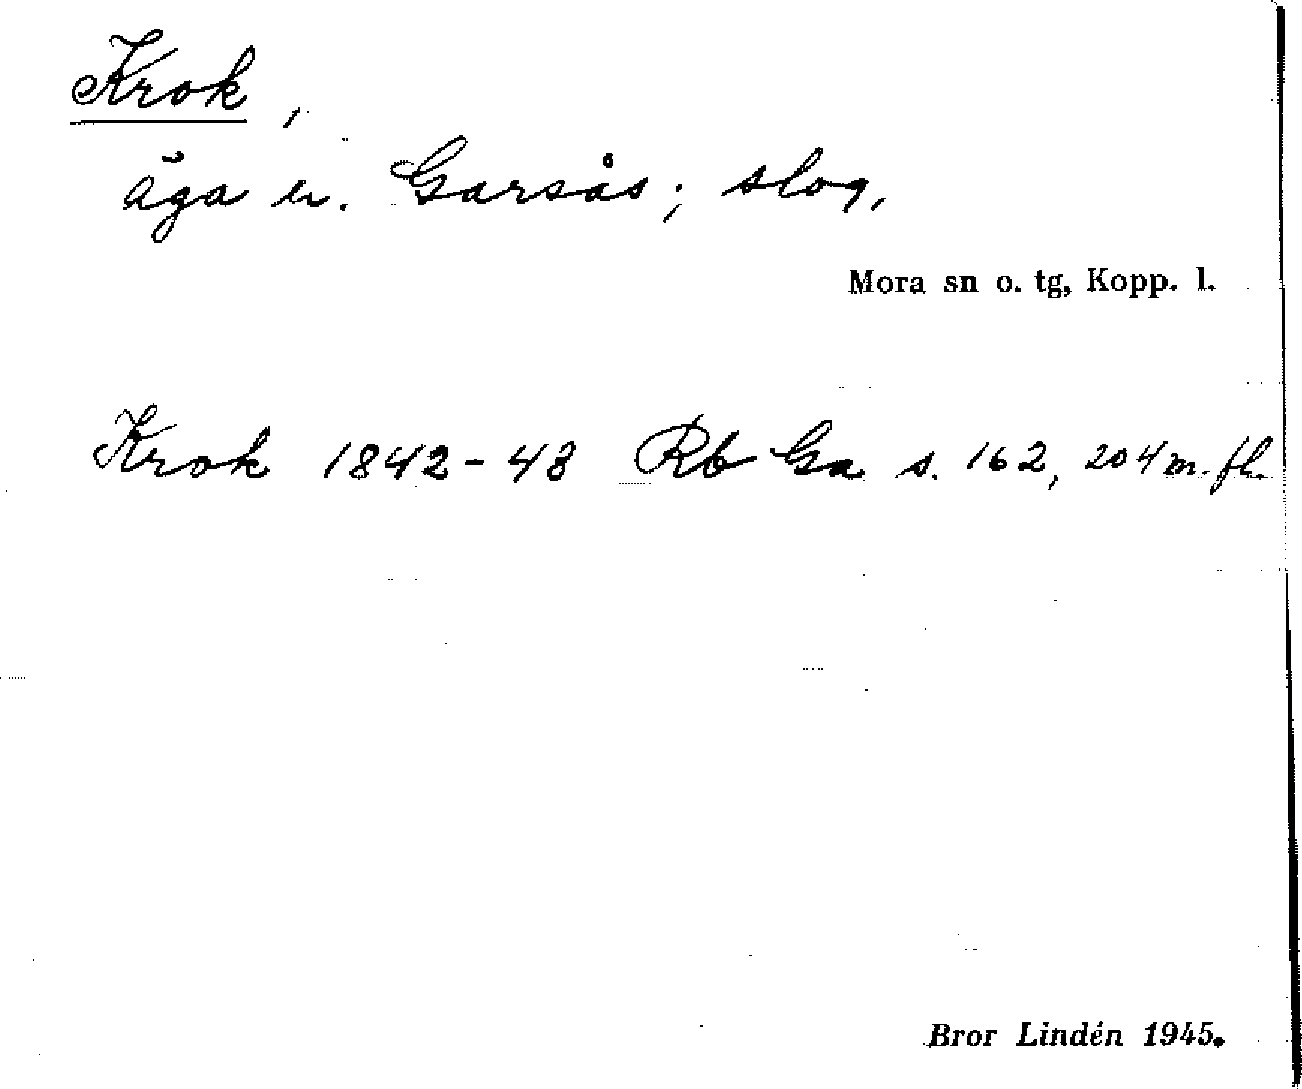 Krok,
äga n. Garsås; slog,
Mora sn o. tg, Kopp. l.
Krok 1842-43 Rb Ga s. 162, 204 m. fl.
Bror Lindén 1945.